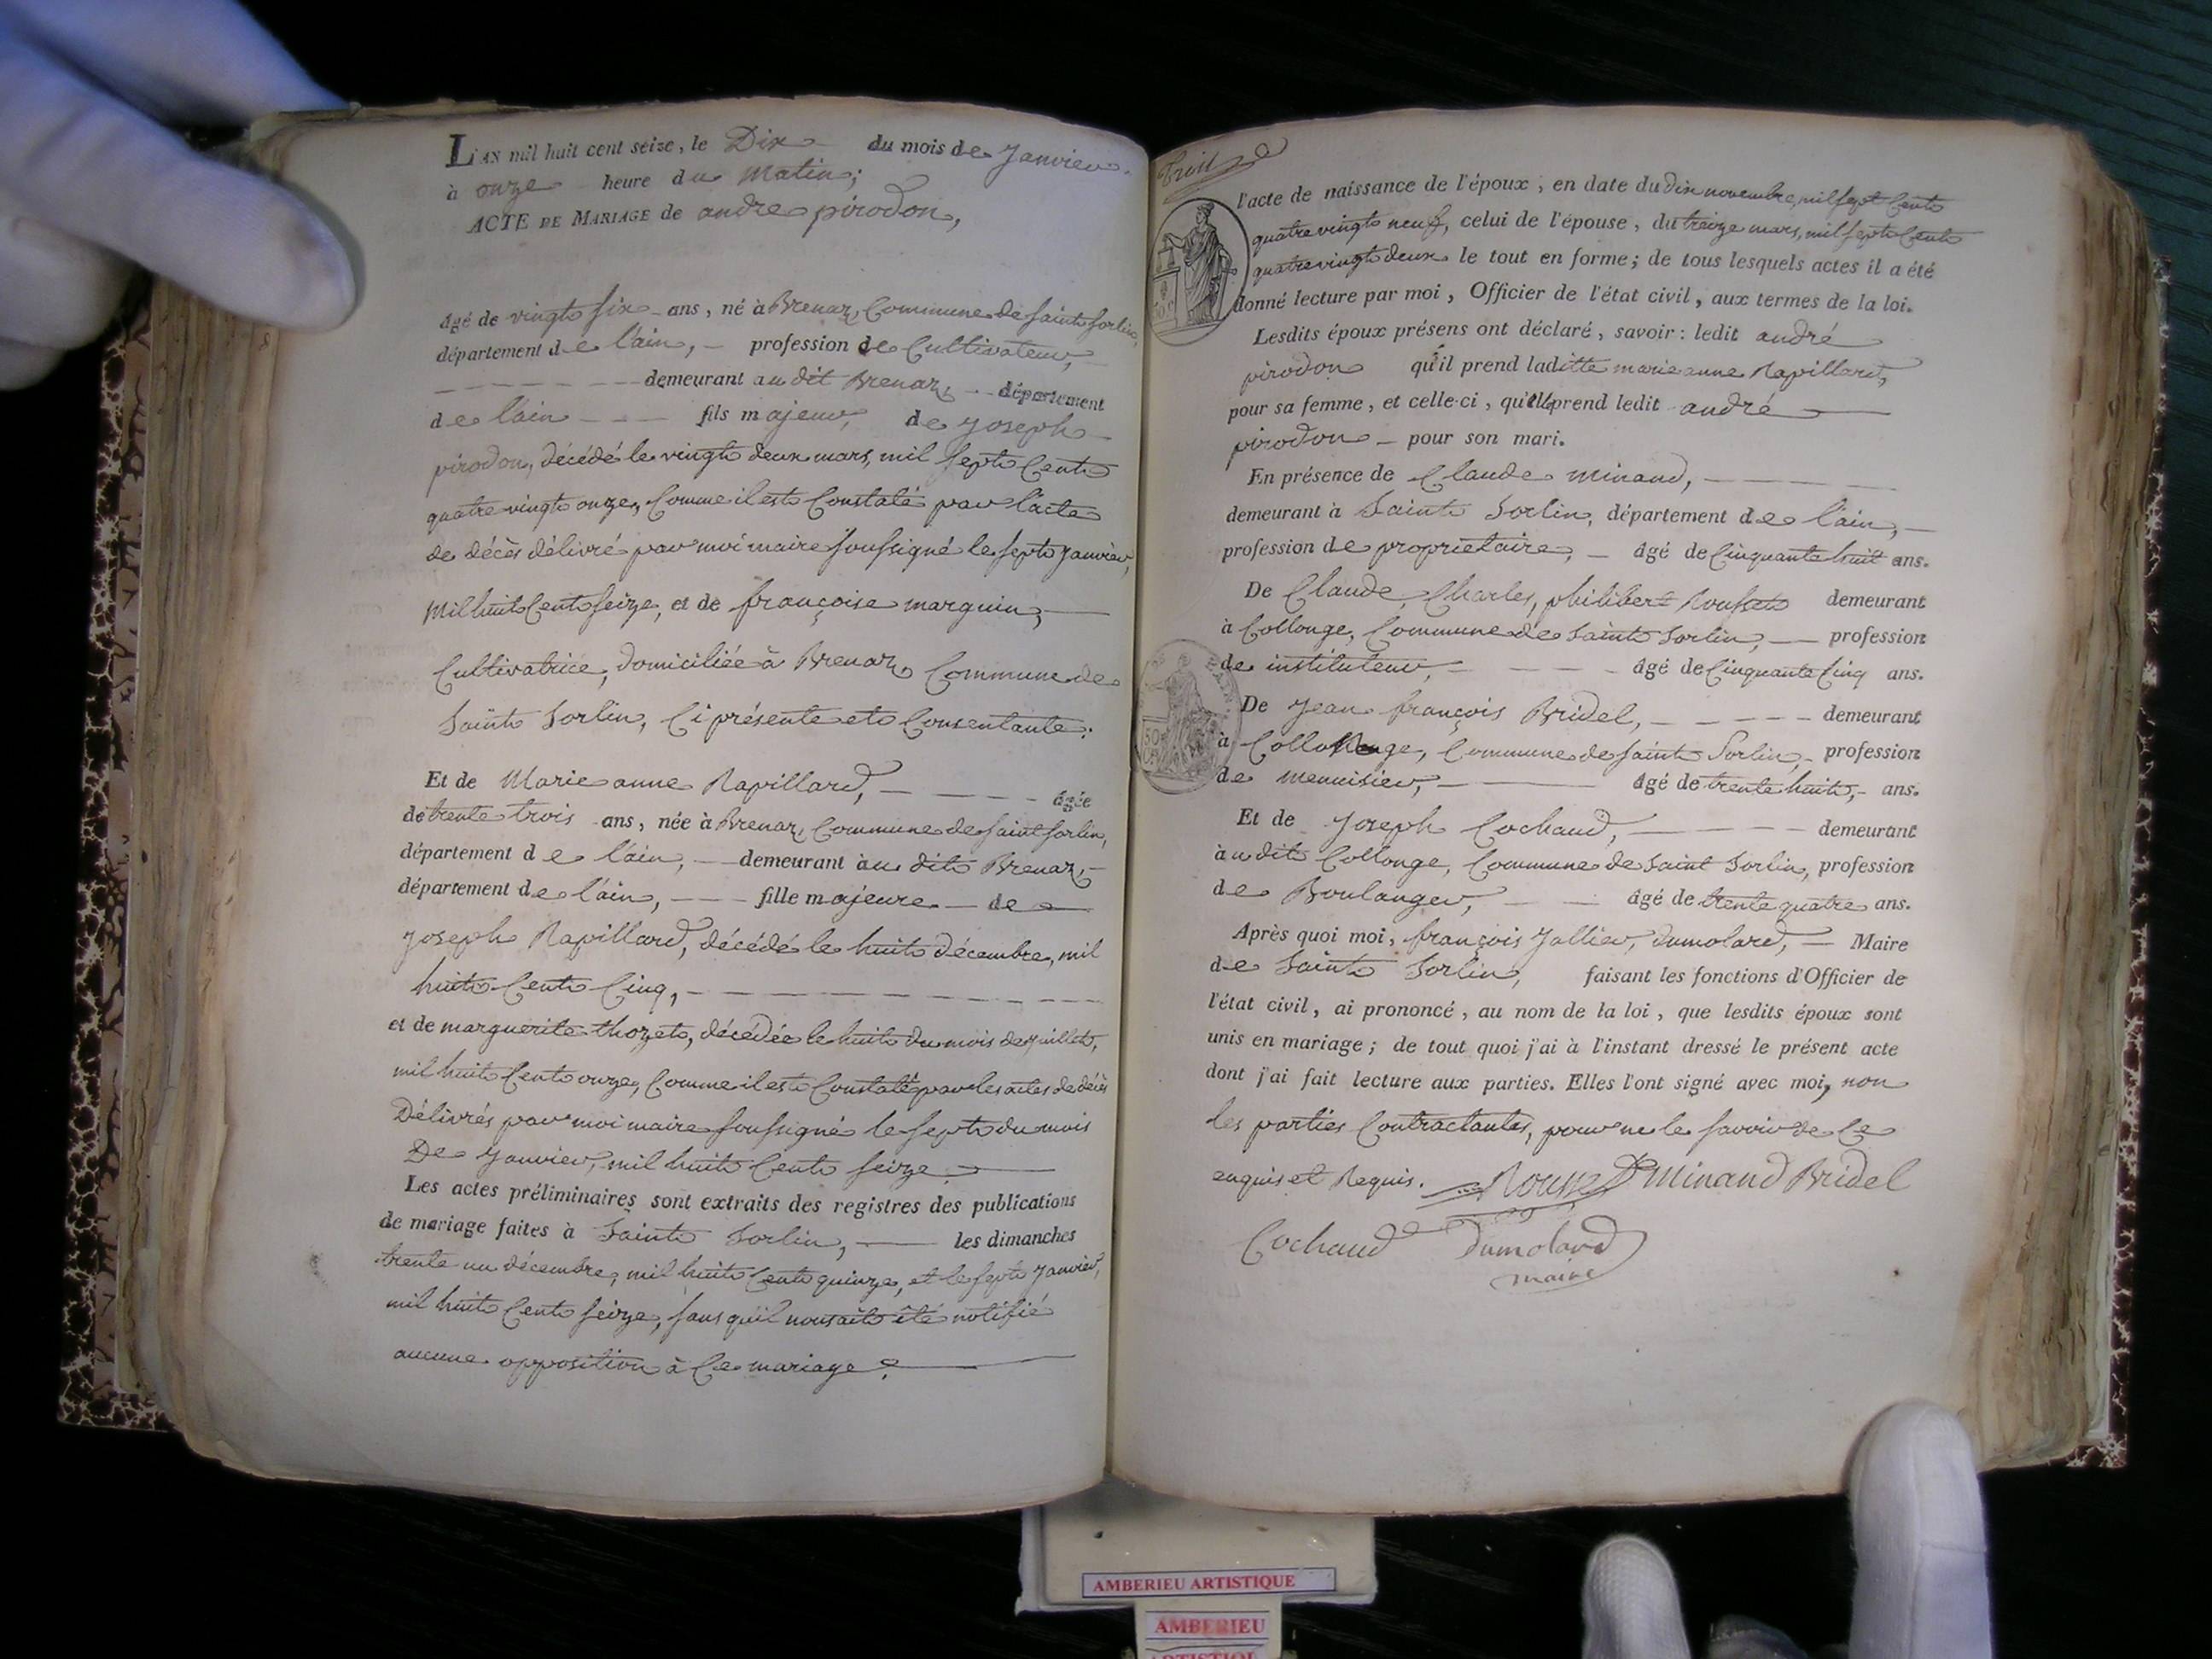 L'AN mil huit cent seize, le Dix du mois de Janvier
à onze heure du Matin;
ACTE DE MARIAGE de andre pirodon,
âgé de vingt six ans, né à Brenaz Commune de saint sorlin,
département de l'ain, profession de Cultivateur,
demeurant au dit Brenaz, département
de l'ain fils majeur, de joseph
pirodon, décédé le vingt deux mars, mil sept Cent
quatre vingt onze, Comme il est Constaté par l'acte
de décès délivré par moi maire soussigné le sept janvier,
mil huit Cent seize, et de françoise marguin,
Cultivatrice, domiciliée à Brenaz Commune de
Saint Sorlin, Ci présente et Consentante;
Et de Marie anne Rapillard, âgée
de trente trois ans, née à Brenaz, Commune de saint sorlin,
département de l'ain, demeurant au dit Brenaz,
département de l'ain, fille majeure de
joseph Rapillard, décédé le huit décembre, mil
huit Cent Cinq,
et de marguerite thozet, décédée le huit du mois de juillet,
mil huit Cent onze, Comme il est Constaté par les actes de décès
Délivrés par moi maire soussigné le sept du mois
De janvier, mil huit Cent seize
Les actes préliminaires sont extraits des registres des publications
de mariage faites à Saint Sorlin, les dimanches
trente un décembre, mil huit Cent quinze, et le sept janvier,
mil huit Cent seize, sans qu'il nous ait été notifié
aucune opposition à Ce mariage.
l'acte de naissance de l'époux, en date du dix novembre, mil sept Cent
quatre vingt neuf, celui de l'épouse, du treize mars, mil sept Cent
quatre vingt deux le tout en forme; de tous lesquels actes il a été
donné lecture par moi, Officier de l'état civil, aux termes de la loi.
Lesdits époux présens ont déclaré, savoir: ledit andré
pirodon qu'il prend laditte marie anne Rapillard,
pour sa femme, et celle-ci, qu'elle prend ledit andré
pirodon pour son mari.
En présence de Claude minand,
demeurant à Saint Sorlin, département de l'ain,
profession de proprietaire, âgé de Cinquante huit ans.
De Claude, Charles, philibert Rousset demeurant
à Collonge, Commune de Saint Sorlin, profession
de instituteur, âgé de Cinquante Cinq ans.
De jean françois Bridel, demeurant
à Collonge, Commune de saint Sorlin, profession
de menuisier, âgé de trente huit, ans.
Et de joseph Cochaud, demeurant
au dit Collonge, Commune de Saint Sorlin, profession
de Boulanger, âgé de trente quatre ans.
Après quoi moi, françois jallier, dumolard, Maire
de Saint Sorlin, faisant les fonctions d'Officier de
l'état civil, ai prononcé, au nom de la loi, que lesdits époux sont
unis en mariage; de tout quoi j'ai à l'instant dressé le présent acte
dont j'ai fait lecture aux parties. Elles l'ont signé avec moi, non
les parties Contractantes, pour ne le savoir de Ce
enquis et Requis. Rousset Minand Bridel
Cochaud Dumolard
maire
AMBERIEU ARTISTIQUE
AMBERIEU
ARTISTIQUE